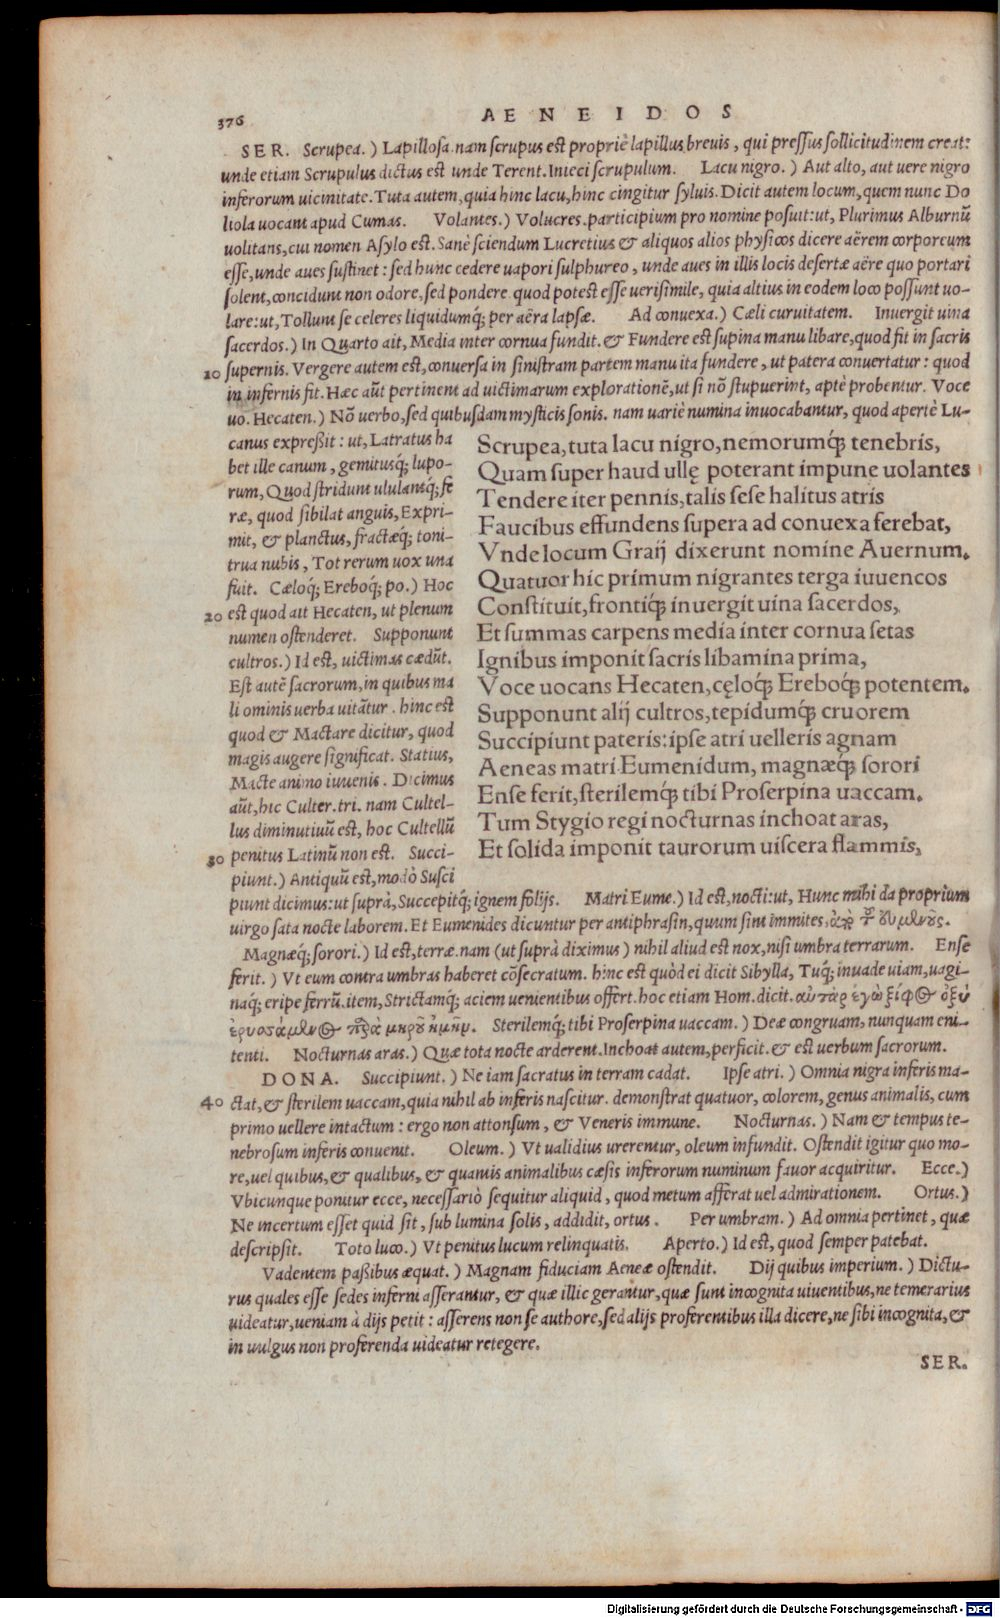 376
AENEIDOS
SER. Scrupea.) Lapillosa. nam scrupus est propriè lapillus breuis, qui pressus sollicitudinem creat:
unde etiam Scrupulus dictus est unde Terent. Inieci scrupulum. Lacu nigro.) Aut alto, aut uere nigro
inferorum uicinitate. Tuta autem, quia hinc lacu, hinc cingitur syluis. Dicit autem locum, quem nunc Do
liola uocant apud Cumas. Volantes.) Volucres. participium pro nomine posuit: ut, Plurimus Alburnū
uolitans, cui nomen Asylo est. Sanè sciendum Lucretius & aliquos alios physicos dicere aërem corporeum
esse, unde aues sustinet: sed hunc cedere uapori sulphureo, unde aues in illis locis desertæ aëre quo portari
solent, concidunt non odore, sed pondere. quod potest esse uerisimile, quia altius in eodem loco possunt uo-
lare: ut, Tollunt se celeres liquidumq́; per aëra lapsæ. Ad conuexa.) Cæli curuitatem. Inuergit uina
sacerdos.) In Quarto ait, Media inter cornua fundit. & Fundere est supina manu libare, quod fit in sacris
10 supernis. Vergere autem est, conuersa in sinistram partem manu ita fundere, ut patera conuertatur: quod
in infernis fit. Hæc aūt pertinent ad uictimarum explorationē, ut si nō stupuerint, aptè probentur. Voce
uo. Hecaten.) Nō uerbo, sed quibusdam mysticis sonis. nam uariè numina inuocabantur, quod apertè Lu-
canus expreßit: ut, Latratus ha
bet ille canum, gemitusq́; lupo-
rum, Quod stridunt ululantq́; fe
ræ, quod sibilat anguis, Expri-
mit, & planctus, fractæq́; toni-
trua nubis, Tot rerum uox una
fuit. Cæloq́; Ereboq́; po.) Hoc
20 est quod ait Hecaten, ut plenum
numen ostenderet. Supponunt
cultros.) Id est, uictimas cædūt.
Est autē sacrorum, in quibus ma
li ominis uerba uitātur. hinc est
quod & Mactare dicitur, quod
magis augere significat. Statius,
Macte animo iuuenis. Dicimus
aūt, hic Culter. tri. nam Cultel-
lus diminutiuū est, hoc Cultellū
30 penitus Latinū non est. Succi-
piunt.) Antiquū est, modò Susci
Scrupea, tuta lacu nigro, nemorumq́; tenebris,
Quam super haud ullę poterant impune uolantes
Tendere iter pennis, talis sese halitus atris
Faucibus effundens supera ad conuexa ferebat,
Vnde locum Graij dixerunt nomine Auernum.
Quatuor hic primum nigrantes terga iuuencos
Constituit, frontiq́; inuergit uina sacerdos,
Et summas carpens media inter cornua setas
Ignibus imponit sacris libamina prima,
Voce uocans Hecaten, cęloq́; Ereboq́; potentem.
Supponunt alij cultros, tepidumq́; cruorem
Succipiunt pateris: ipse atri uelleris agnam
Aeneas matri Eumenidum, magnæq́; sorori
Ense ferit, sterilemq́; tibi Proserpina uaccam.
Tum Stygio regi nocturnas inchoat aras,
Et solida imponit taurorum uiscera flammis,
piunt dicimus: ut suprà, Succepitq́; ignem folijs. Matri Eume.) Id est, nocti: ut, Hunc mihi da proprium
uirgo sata nocte laborem. Et Eumenides dicuntur per antiphrasin, quum sint immites,
Magnæq́; sorori.) Id est, terræ. nam (ut suprà diximus) nihil aliud est nox, nisi umbra terrarum. Ense
ferit.) Vt eum contra umbras haberet cōsecratum. hinc est quòd ei dicit Sibylla, Tuq́; inuade uiam, uagi-
naq́; eripe ferrū. item, Strictamq́; aciem uenientibus offert. hoc etiam Hom. dicit. αὐτὰρ ἐγὼ ξίφος ὀξὺ
ἐρυσάμενος παρὰ μηροῦ ἥμην. Sterilemq́; tibi Proserpina uaccam.) Deæ congruam, nunquam eni-
tenti. Nocturnas aras.) Quæ tota nocte arderent. Inchoat autem, perficit. & est uerbum sacrorum.
DONA. Succipiunt.) Ne iam sacratus in terram cadat. Ipse atri.) Omnia nigra inferis ma-
40 ctat, & sterilem uaccam, quia nihil ab inferis nascitur. demonstrat quatuor, colorem, genus animalis, cum
primo uellere intactum: ergo non attonsum, & Veneris immune. Nocturnas.) Nam & tempus te-
nebrosum inferis conuenit. Oleum.) Vt ualidius urerentur, oleum infundit. Ostendit igitur quo mo-
re, uel quibus, & qualibus, & quantis animalibus cæsis inferorum numinum fauor acquiritur. Ecce.)
Vbicunque ponitur ecce, necessariò sequitur aliquid, quod metum afferat uel admirationem. Ortus.)
Ne incertum esset quid sit, sub lumina solis, addidit, ortus. Per umbram.) Ad omnia pertinet, quæ
descripsit. Toto luco.) Vt penitus lucum relinquatis. Aperto.) Id est, quod semper patebat.
Vadentem paßibus æquat.) Magnam fiduciam Aeneæ ostendit. Dij quibus imperium.) Dictu-
rus quales esse sedes inferni asserantur, & quæ illic gerantur, quæ sunt incognita uiuentibus, ne temerarius
uideatur, ueniam à dijs petit: asserens non se authore, sed alijs proferentibus illa dicere, ne sibi incognita, &
in uulgus non proferenda uideatur retegere.
SER.
Digitalisierung gefördert durch die Deutsche Forschungsgemeinschaft - DFG